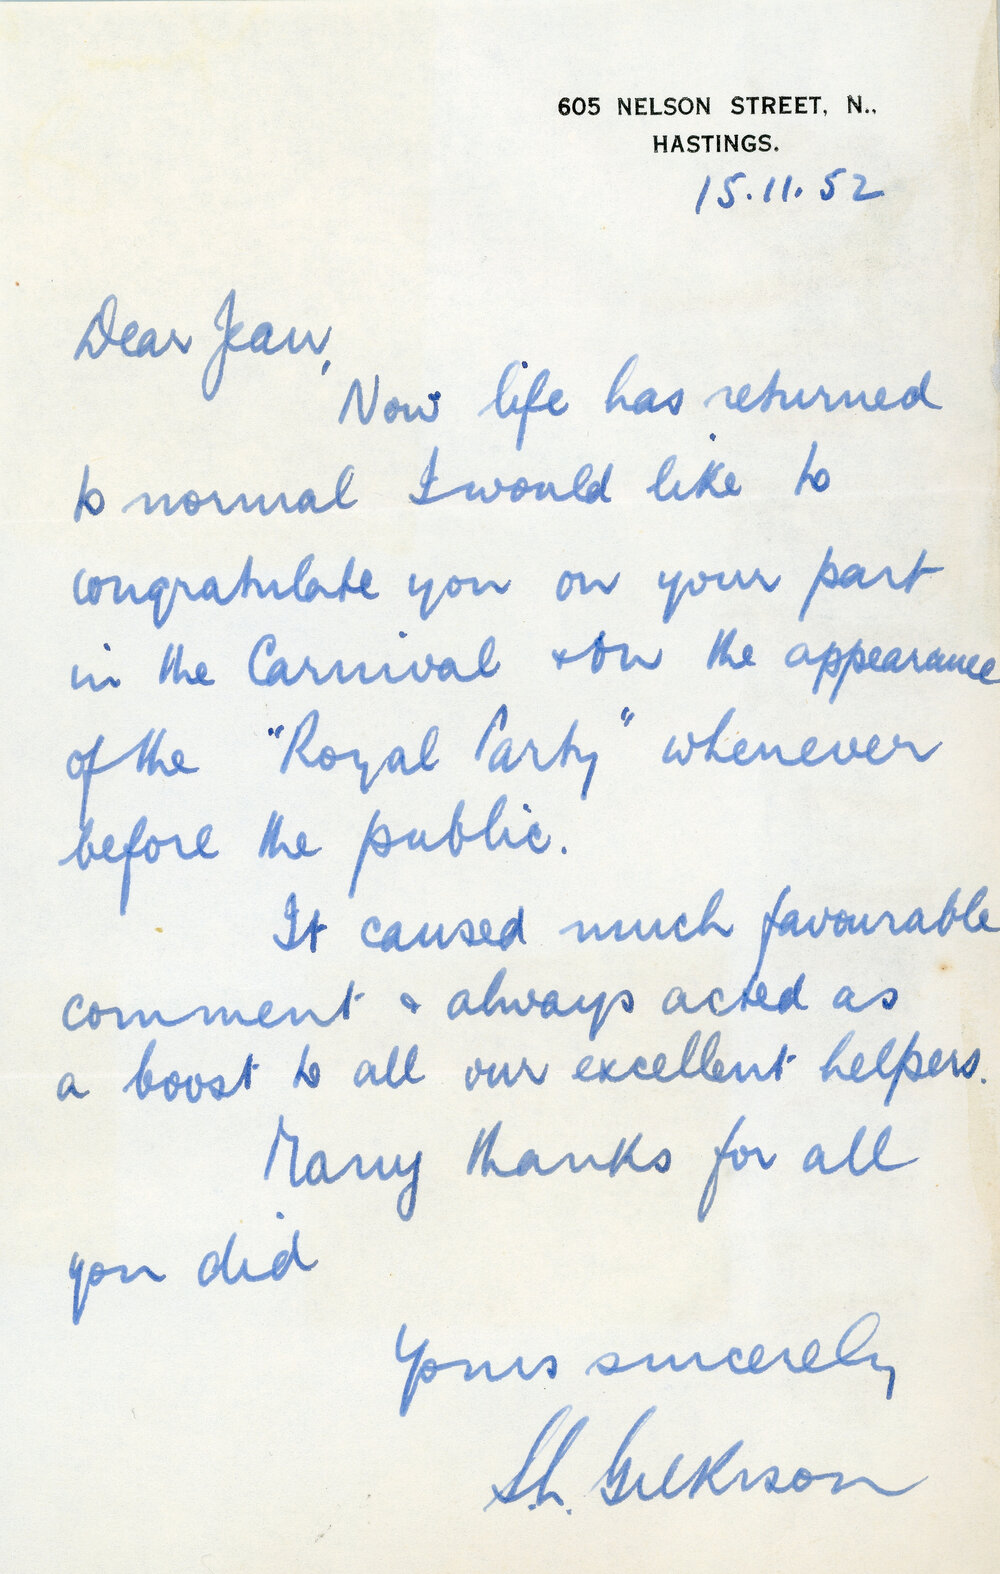 605 NELSON STREET, N.,
HASTINGS.
15.11.52
Dear Jean,
Now life has returned
to normal I would like to
congratulate you on your part
in the Carnival & on the appearance
of the "Royal Party" whenever
before the public.
It caused much favourable
comment & always acted as
a boost to all our excellent helpers.
Many thanks for all
you did
Yours sincerely
S.h. Gilkison